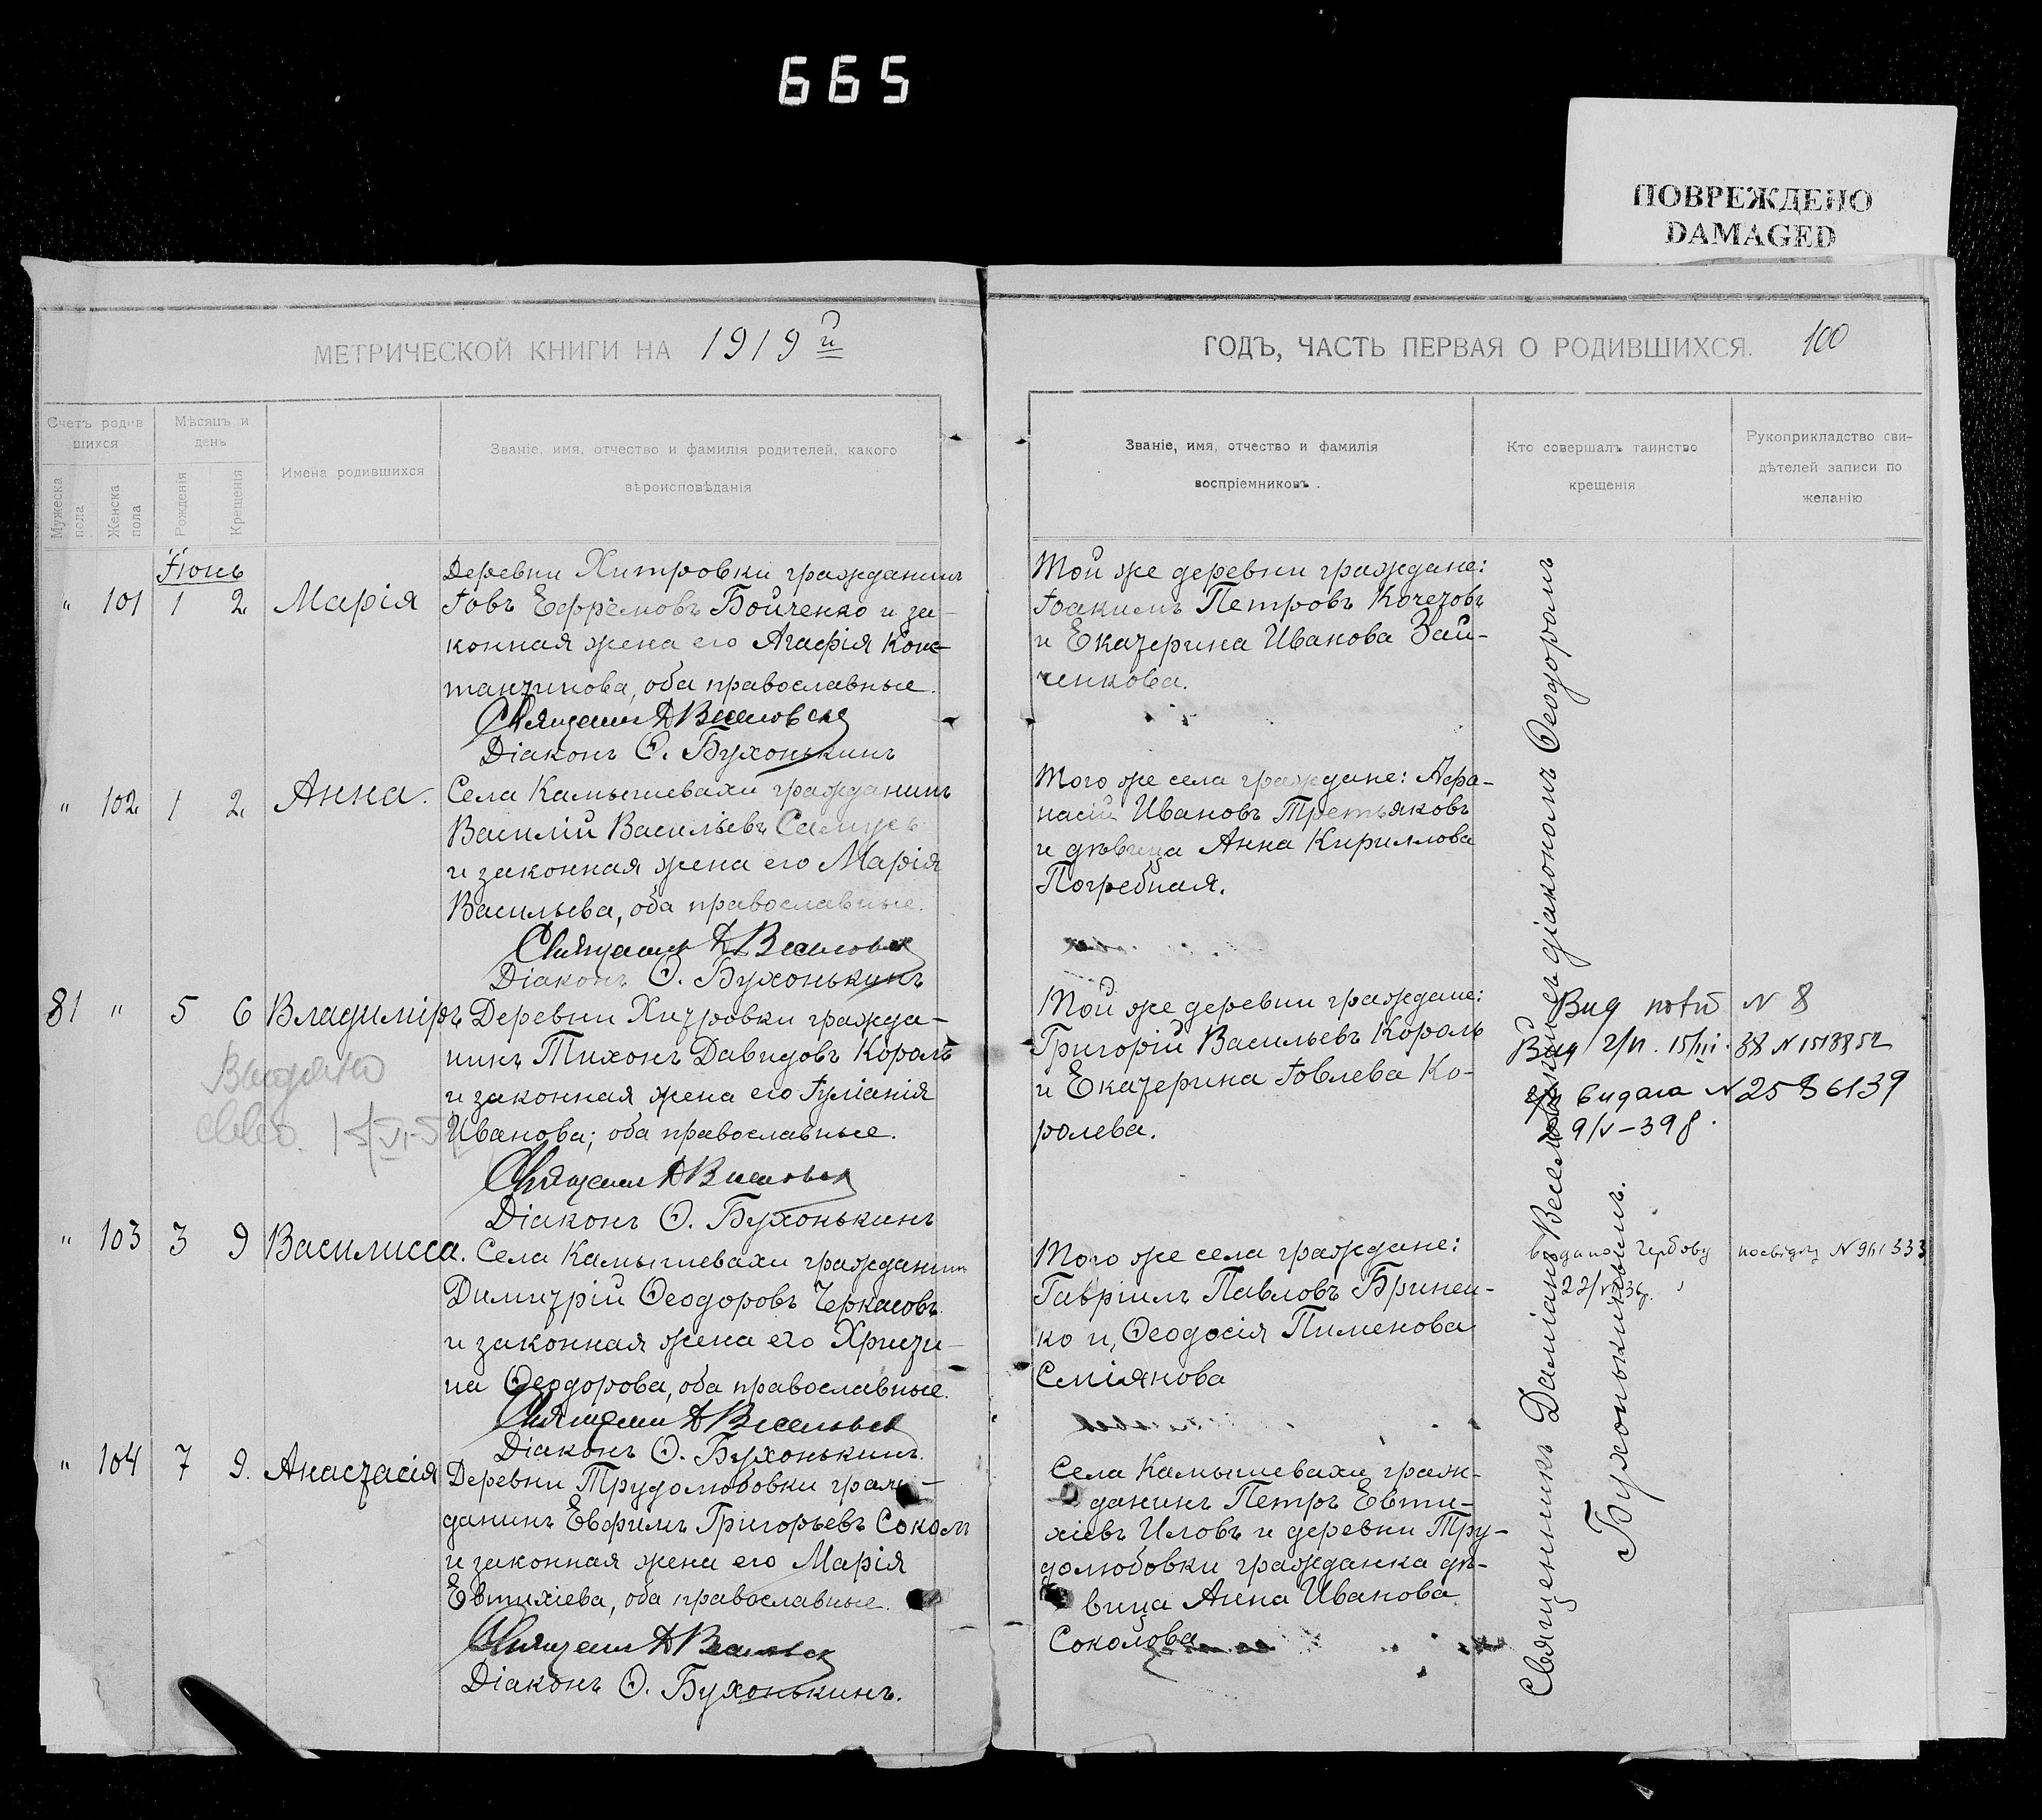 665
ПОВРЕЖДЕНО
DAMAGED
МЕТРИЧЕСКОЙ КНИГИ НА 1919 й
ГОДЪ, ЧАСТЬ ПЕРВАЯ О РОДИВШИХСЯ. 100
Счетъ родив
шихся
Мужеска пола
Женска пола
Мѣсяцъ и
день
Рожденія
Крещенія
Имена родившихся
Званіе, имя, отчество и фамилія родителей, какого
вѣроисповѣданія
Званіе, имя, отчество и фамилія
воспріемниковъ.
Кто совершалъ таинство
крещенія
Рукоприкладство сви-
дѣтелей записи по
желанію
Іюнь
" 101 1 2 Марія
Деревни Хитровки гражданинъ
Іовъ Ефремовъ Бойченко и за-
конная жена его Агафія Конс-
тантинова, оба православные.
Священникъ Д Веселовскій
Діаконъ Ѳ. Бухонькинъ
Той же деревни граждане:
Іоакимъ Петровъ Кочетовъ
и Екатерина Иванова Зай-
ченкова.
" 102 1 2 Анна.
Села Камышевахи гражданинъ
Василій Васильевъ Самусь
и законная жена его Марія
Васильева, оба православные.
Священникъ Д Веселовскій
Діаконъ Ѳ. Бухонькинъ
Того же села граждане: Афа-
насій Ивановъ Третьяковъ
и дѣвица Анна Кириллова
Погребная.
81 " 5 6 Владиміръ
Деревни Хитровки гражда-
нинъ Тихонъ Давидовъ Король
и законная жена его Іуліанія
Иванова; оба православные.
Священникъ Д Веселовскій
Діаконъ Ѳ. Бухонькинъ
Выдано
Той же деревни граждане:
Григорій Васильевъ Король
и Екатерина Іовлева Ко-
ролева.
Вид N 8
Вид 15/III. 38 N 1518852
видана N 2586139
9/V-39 р.
" 103 3 9 Василисса.
Села Камышевахи гражданинъ
Димитрій Ѳеодоровъ Черкасовъ
и законная жена его Христи-
на Ѳеодорова, оба православные.
Священникъ Д Веселовскій
Діаконъ Ѳ. Бухонькинъ.
Того же села граждане:
Гавріилъ Павловъ Бринен-
ко и Ѳеодосія Пименова
Сміянова
видано гербову посвідч N 961333
" 104 7 9. Анастасія
Деревни Трудолюбовки граж-
данинъ Евфимъ Григорьевъ Соколъ
и законная жена его Марія
Евтихіева, оба православные.
Священникъ Д Веселовскій
Діаконъ Ѳ. Бухонькинъ.
Села Камышевахи граж-
данинъ Петръ Евти-
хіевъ Иловъ и деревни Тру-
долюбовки гражданка дѣ-
вица Анна Иванова
Соколова
Священникъ Даміанъ Веселовскій съ діакономъ Ѳеодоромъ
Бухонькинымъ.